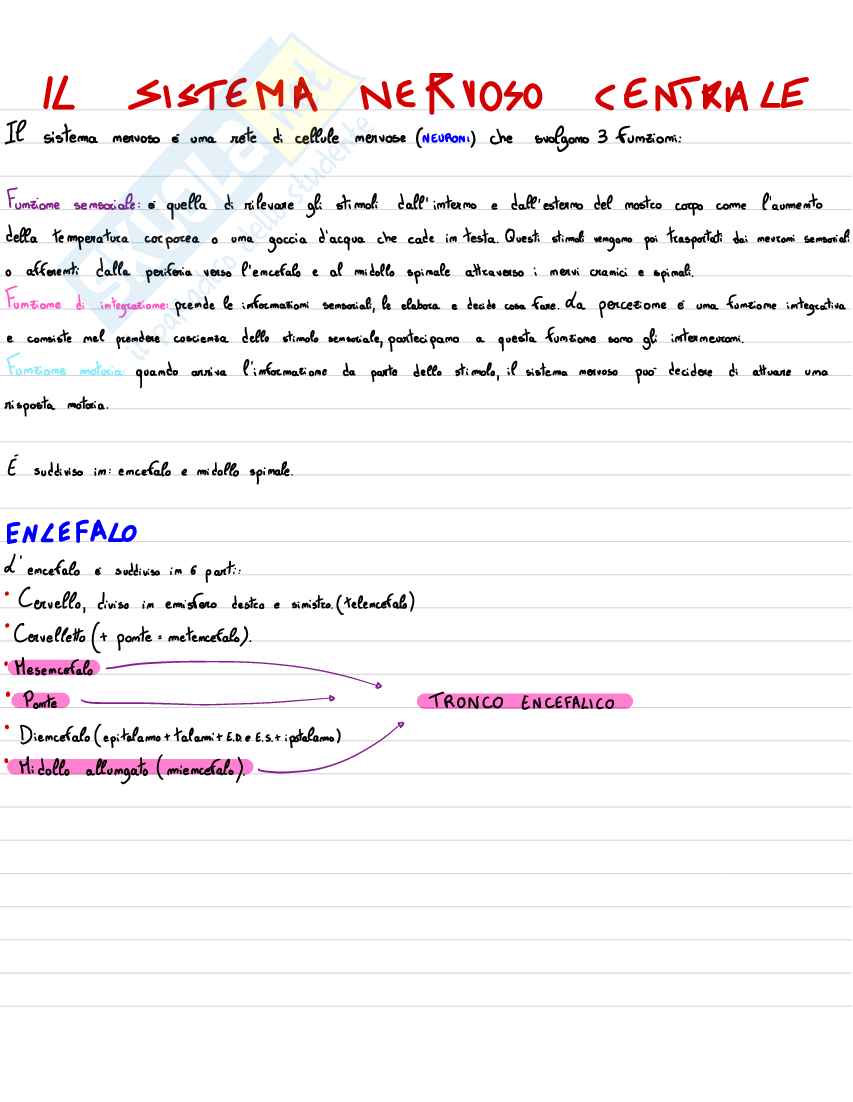 IL SISTEMA NERVOSO CENTRALE
Il sistema nervoso è una rete di cellule nervose (NEURONI) che svolgono 3 funzioni:
Funzione sensoriale: è quella di rilevare gli stimoli dall'interno e dall'esterno del nostro corpo come l'aumento
della temperatura corporea o una goccia d'acqua che cade in testa. Questi stimoli vengono poi trasportati dai neuroni sensoriali
o afferenti dalla periferia verso l'encefalo e al midollo spinale attraverso i nervi cranici e spinali.
Funzione di integrazione: prende le informazioni sensoriali, le elabora e decide cosa fare. La percezione è una funzione integrativa
e consiste nel prendere coscienza dello stimolo sensoriale, partecipano a questa funzione sono gli interneuroni.
Funzione motoria quando arriva l'informazione da parte dello stimolo, il sistema nervoso può decidere di attuare una
risposta motoria.
É suddiviso in: encefalo e midollo spinale.
ENCEFALO
L'encefalo è suddiviso in 6 parti:
• Cervello, diviso in emisfero destro e sinistro. (telencefalo)
• Cervelletto (+ ponte = metencefalo).
• Mesencefalo
• Ponte TRONCO ENCEFALICO
• Diencefalo (epitalamo + talami + E.D. e E.S. + ipotalamo)
• Midollo allungato (mielencefalo).
SKUOLA.net
il paradiso dello studente